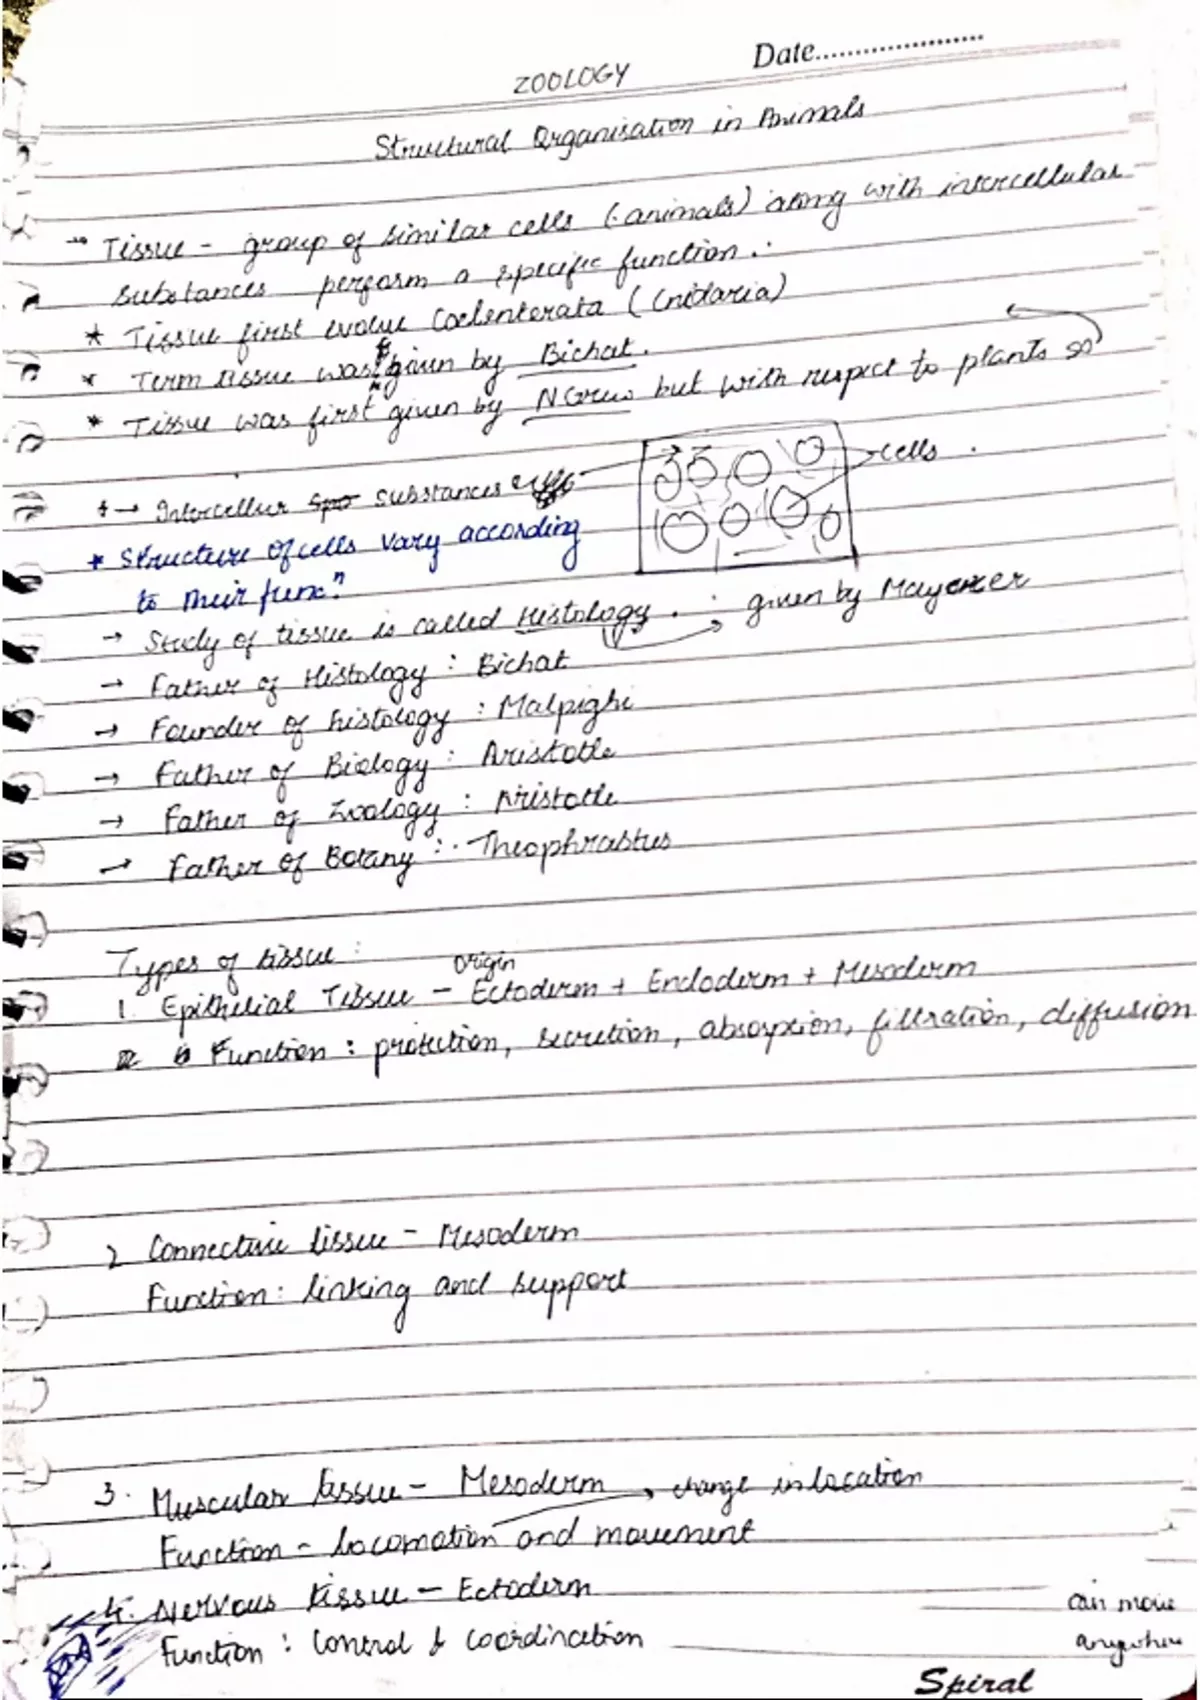 Date....................
ZOOLOGY
Structural Organisation in Animals
→ Tissue - group of similar cells (animals) along with intercellular
substances perform a specific function.
* Tissue first evolve Coelenterata (Cnidaria)
* Term tissue was given by Bichat.
* Tissue was first given by N Grew but with respect to plants so
→ Intercellur substances
cells
* Structure of cells vary according
to their funcⁿ
→ Study of tissue is called Histology. → given by Mayer
→ Father of Histology : Bichat
→ Founder of histology : Malpighi
→ Father of Biology : Aristotle
→ Father of Zoology : Aristotle
→ Father of Botany : Theophrastus
Types of tissue :
origin
1. Epithelial Tissue - Ectoderm + Endoderm + Mesoderm
Function : protection, secretion, absorption, filtration, diffusion
2 Connective tissue - Mesoderm
Function : linking and support
3. Muscular tissue - Mesoderm → change in location
Function - locomotion and movement
4. Nervous tissue - Ectoderm
can move
Function : Control & coordination
anywhere
Spiral